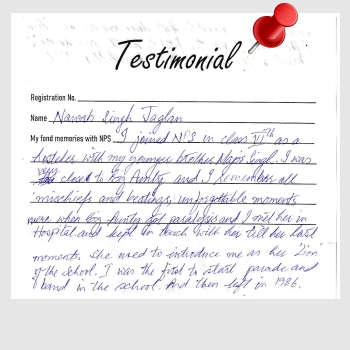 Testimonial
Registration No.
Name Naresh Singh Jaglan
My fund memories with NPS I joined NPS in class VIth as a
hosteler with my younger brother Singh. I was
very close to Aunty and I remember all
mischiefs and beatings, unforgettable moments
were when Aunty got paralysis and I met her in
Hospital and kept in touch with her till her last
moments. She used to introduce me as her 'Lion
of the school. I was the first to start parade and
band in the school. And then left in 1986.